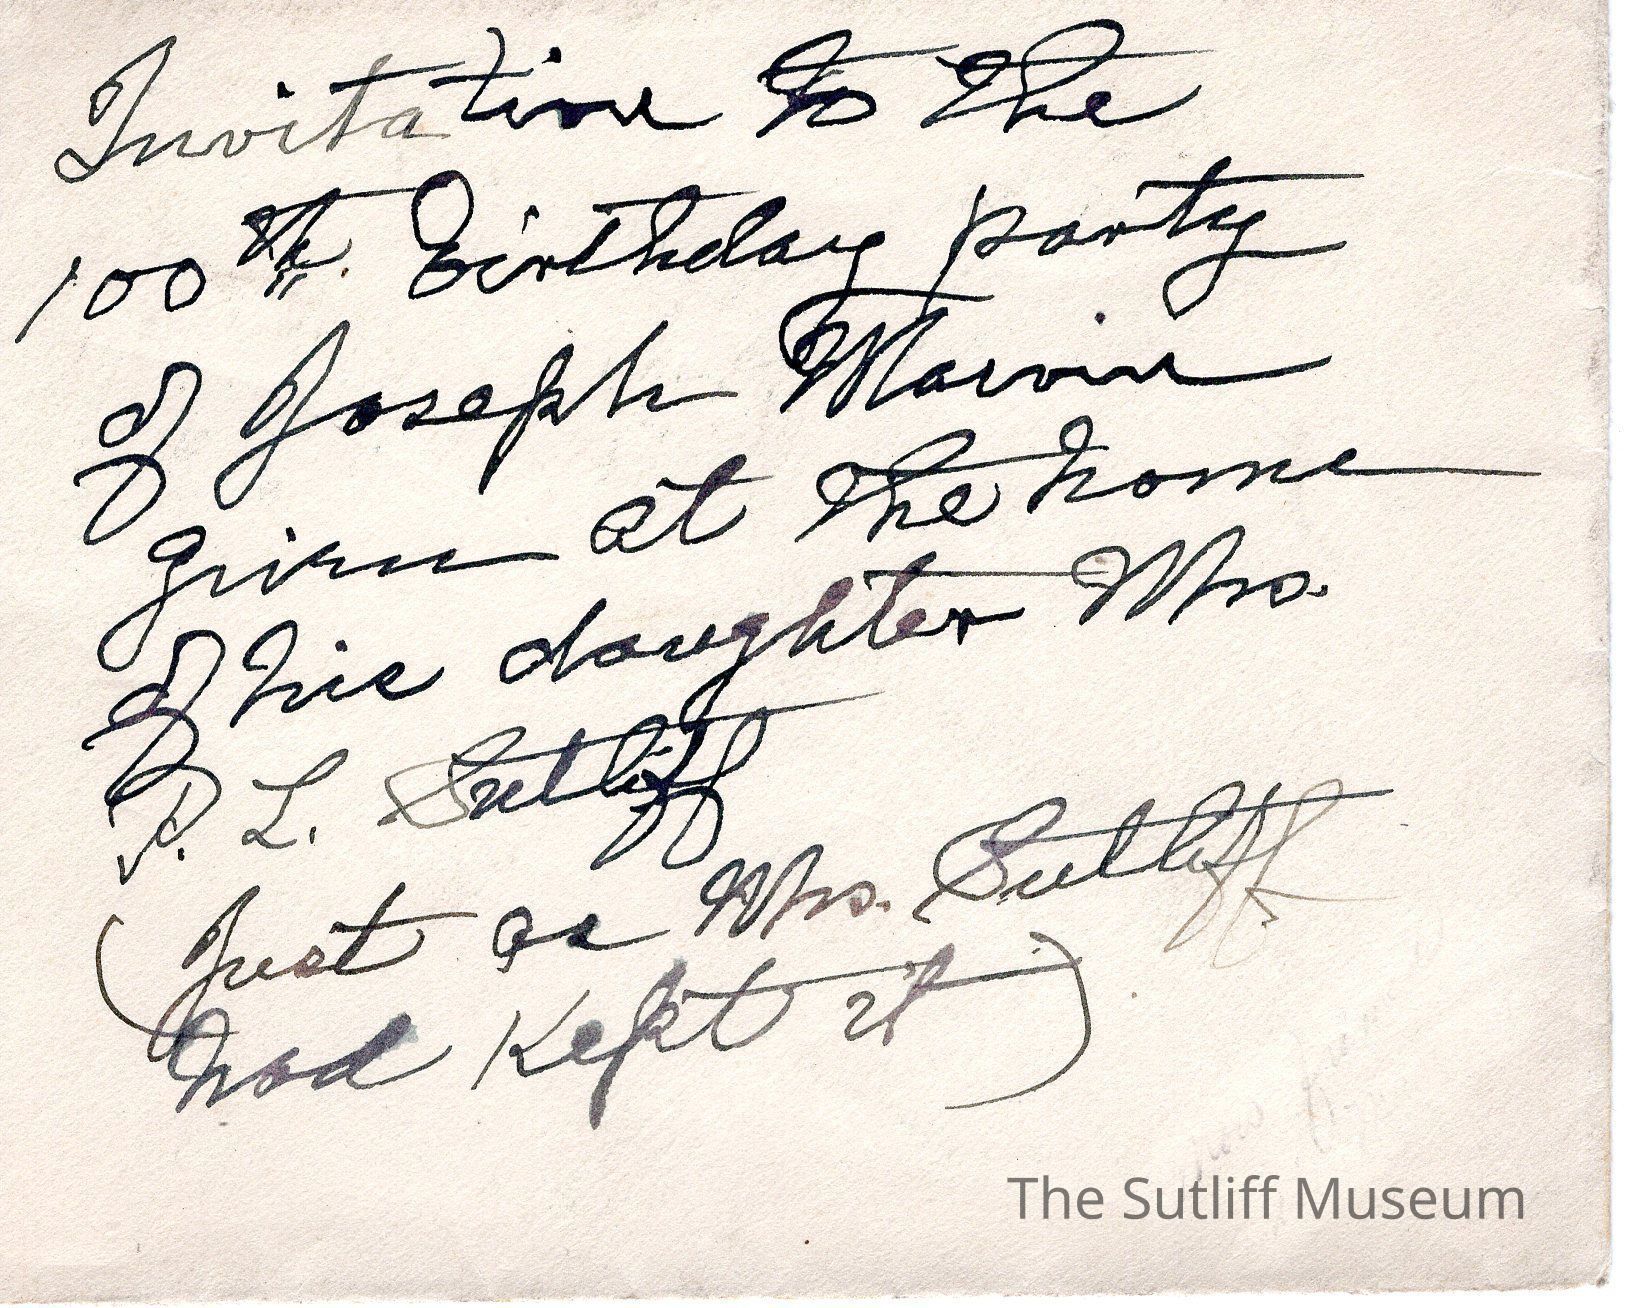 Invitation to the
100th Birthday party
of Joseph Marvin
given at the home
of his daughter Mrs.
P. L. Sutliff
(Just as Mrs. Sutliff
had kept it)
The Sutliff Museum